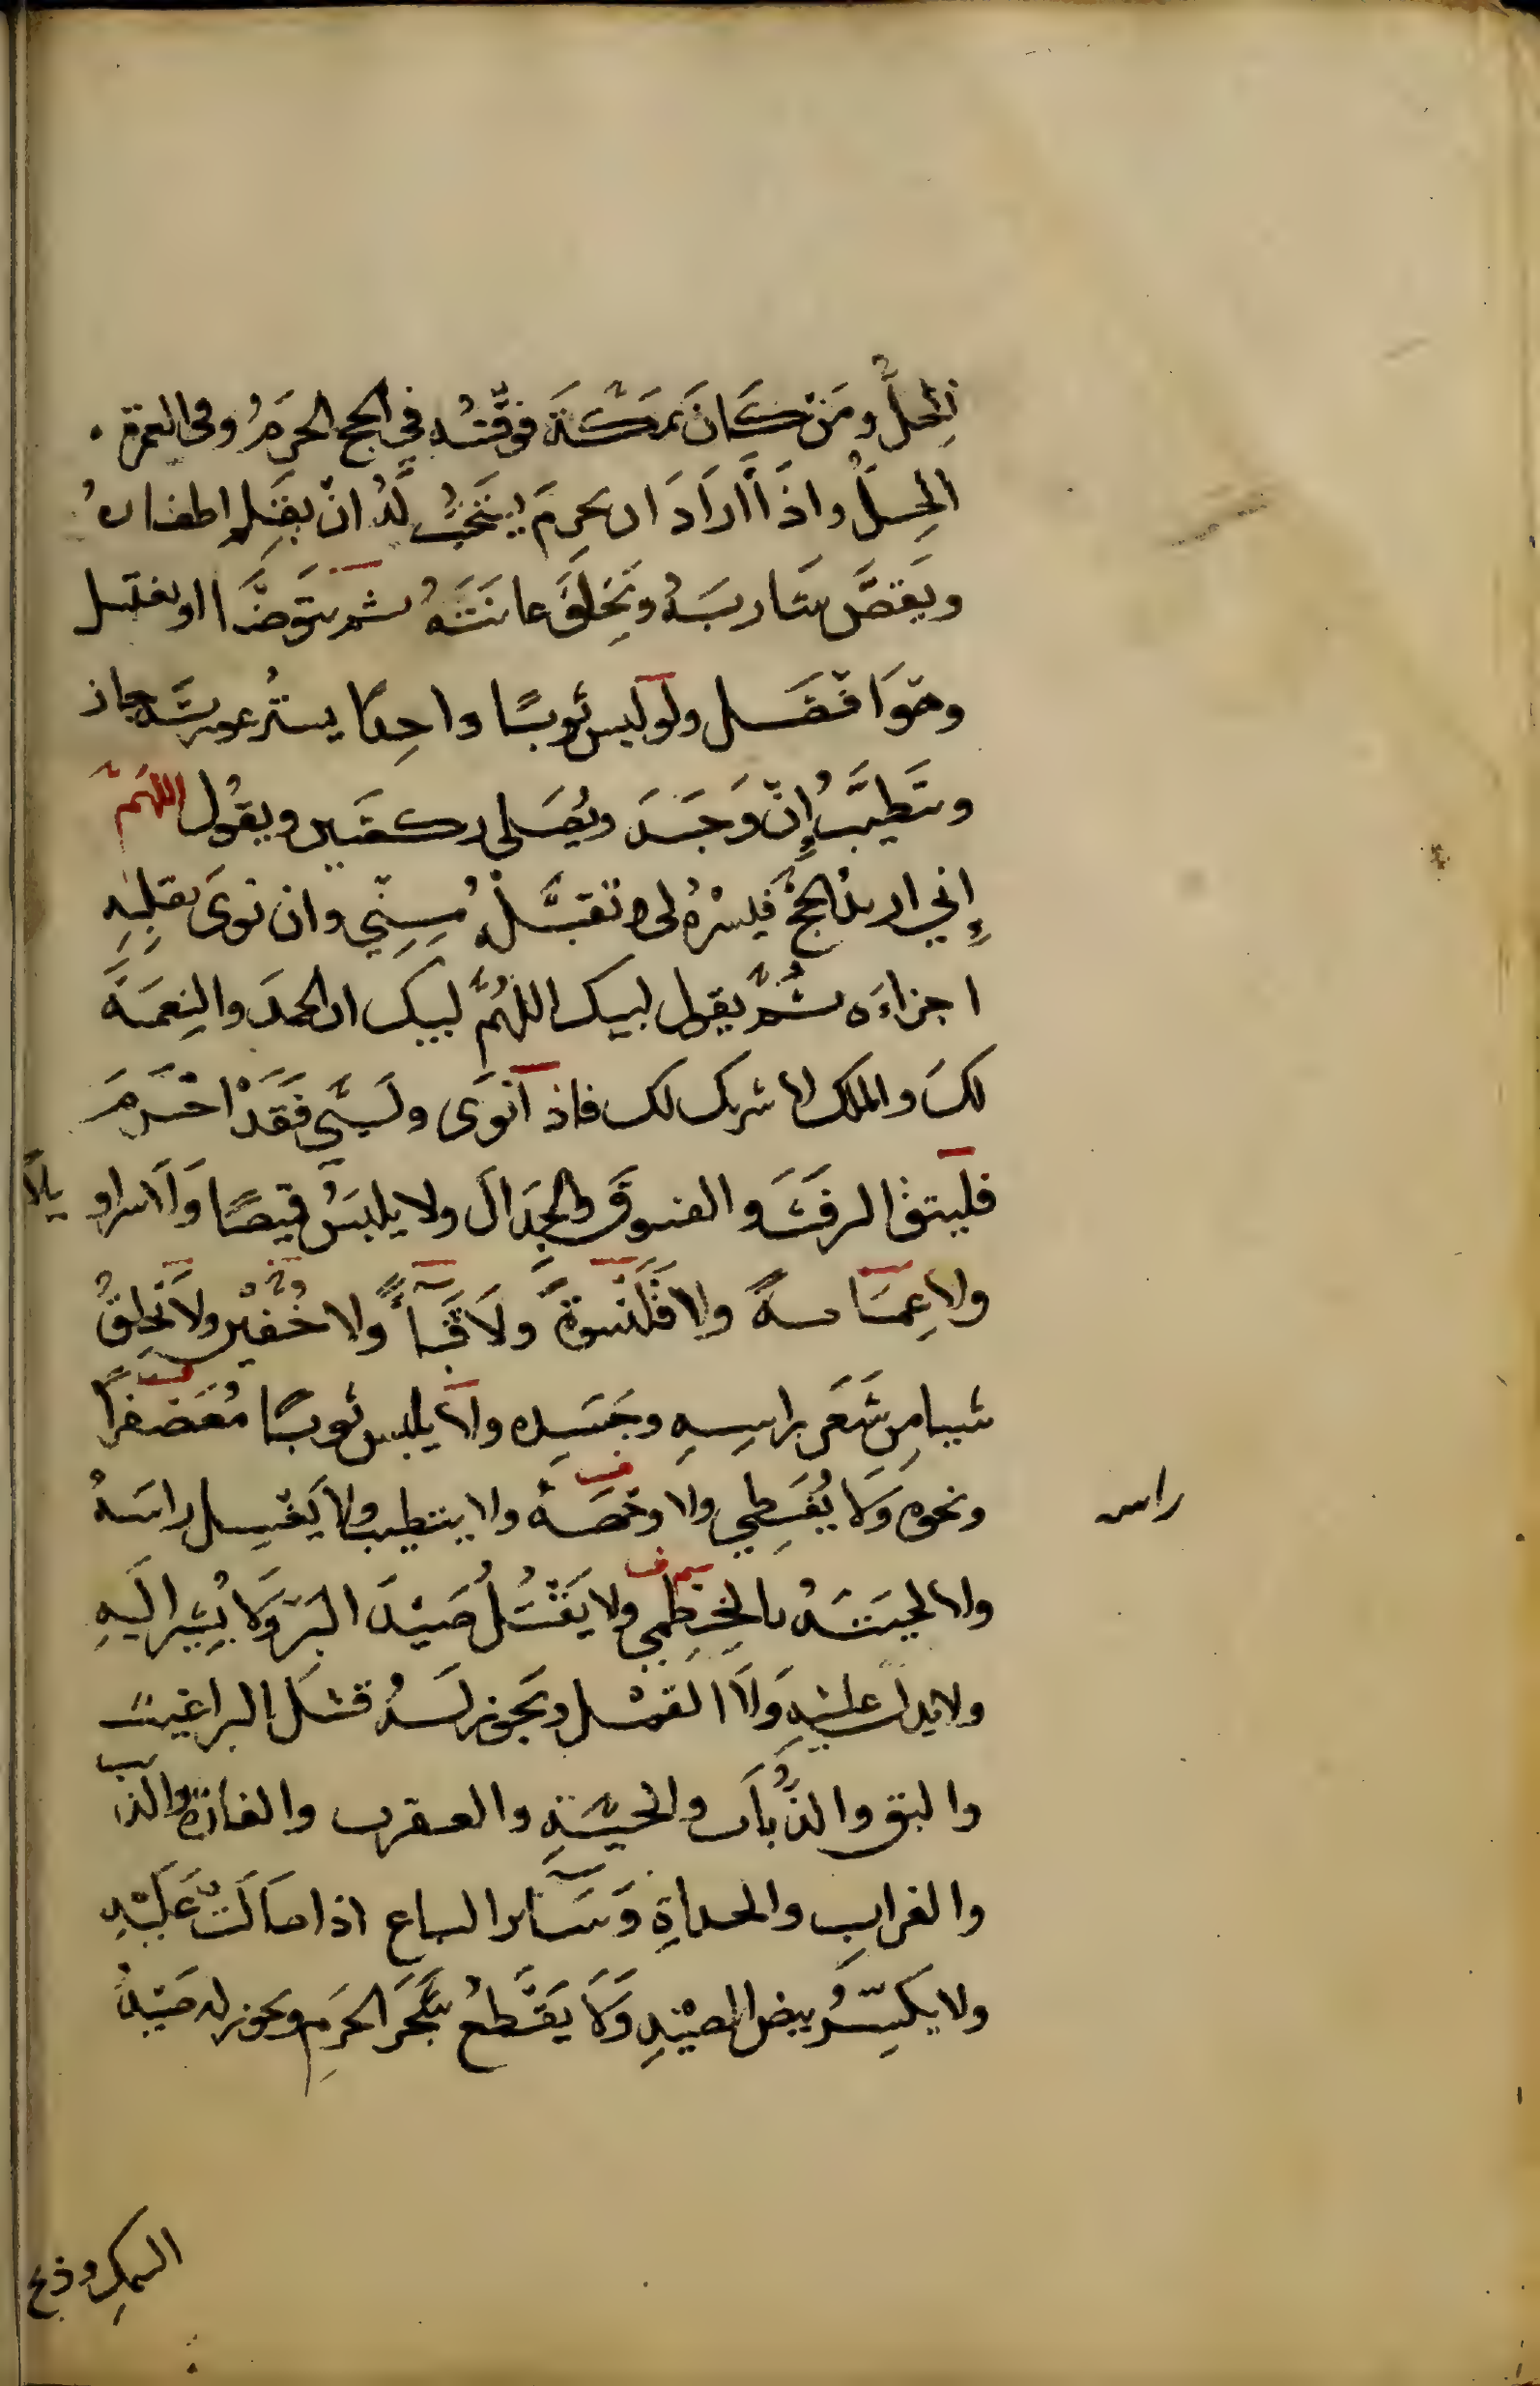 الحل ومن كان بمكة فوقته في الحج الحرم وفي العمرة
الحل واذا اراد ان يحرم يستحب له ان يقلم اظفاره
ويقص شاربه ويحلق عانته ثم يتوضا او يغتسل
وهو افضل ولو لبس ثوبا واحدا يستر عورته جاز
وتطيب إن وجد ويصلي ركعتين ويقول اللهم
إني اريد الحج فيسره لي وتقبله مني وان نوى بقلبه
اجزاءه ثم يقول لبيك اللهم لبيك ان الحمد والنعمة
لك والملك لا شريك لك فاذا نوى ولبى فقد احرم
فليتق الرفث والفسوق والجدال ولا يلبس قميصا ولا سراويلا
ولا عمامة ولا قلنسوة ولا قباء ولا خفين ولا يحلق
شيا من شعر راسه وجسده ولا يلبس ثوبا معصفرا
ونحوه ولا يغطي ولا وجهه ولا يتطيب ولا يغسل راسه
راسه
ولا لحيته بالخطمي ولا يقتل صيد البر ولا يشير اليه
ولا يدل عليه ولا القمل ويجوز له قتل البراغيث
والبق والذباب والحية والعقرب والفارة والذيب
والغراب والحداة وسائر السباع اذا صالت عليه
ولا يكسر بيض الصيد ولا يقطع شجر الحرم ويجوز له صيد
السمك وذبح